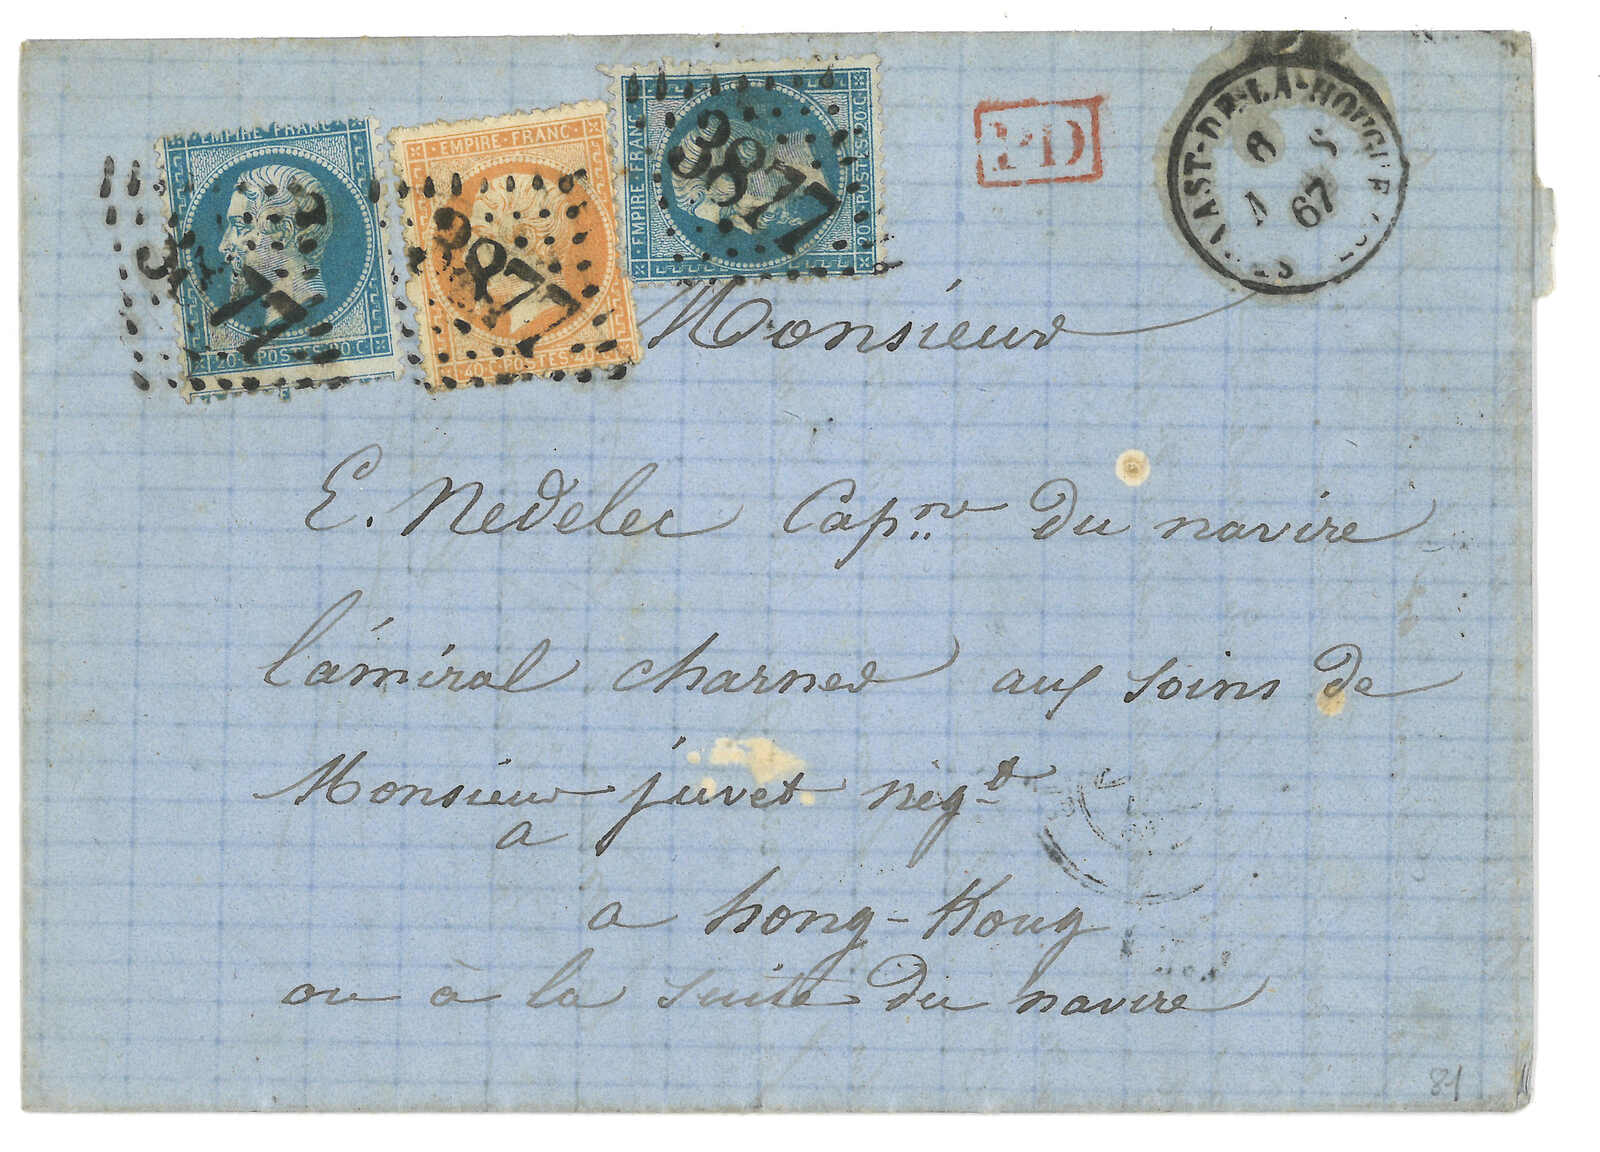 EMPIRE FRANC
3877
20 C POSTES 20 C
EMPIRE FRANC
3877
40 C POSTES 40 C
EMPIRE FRANC
3877
20 C POSTES 20 C
PD
VAST-DE-LA-HOUGUE
8 S
67
Monsieur
E. Nedelec Capne du navire
l'amiral charner aux soins de
Monsieur juvet négt
a
a hong-Koug
ou à la suite du navire
81